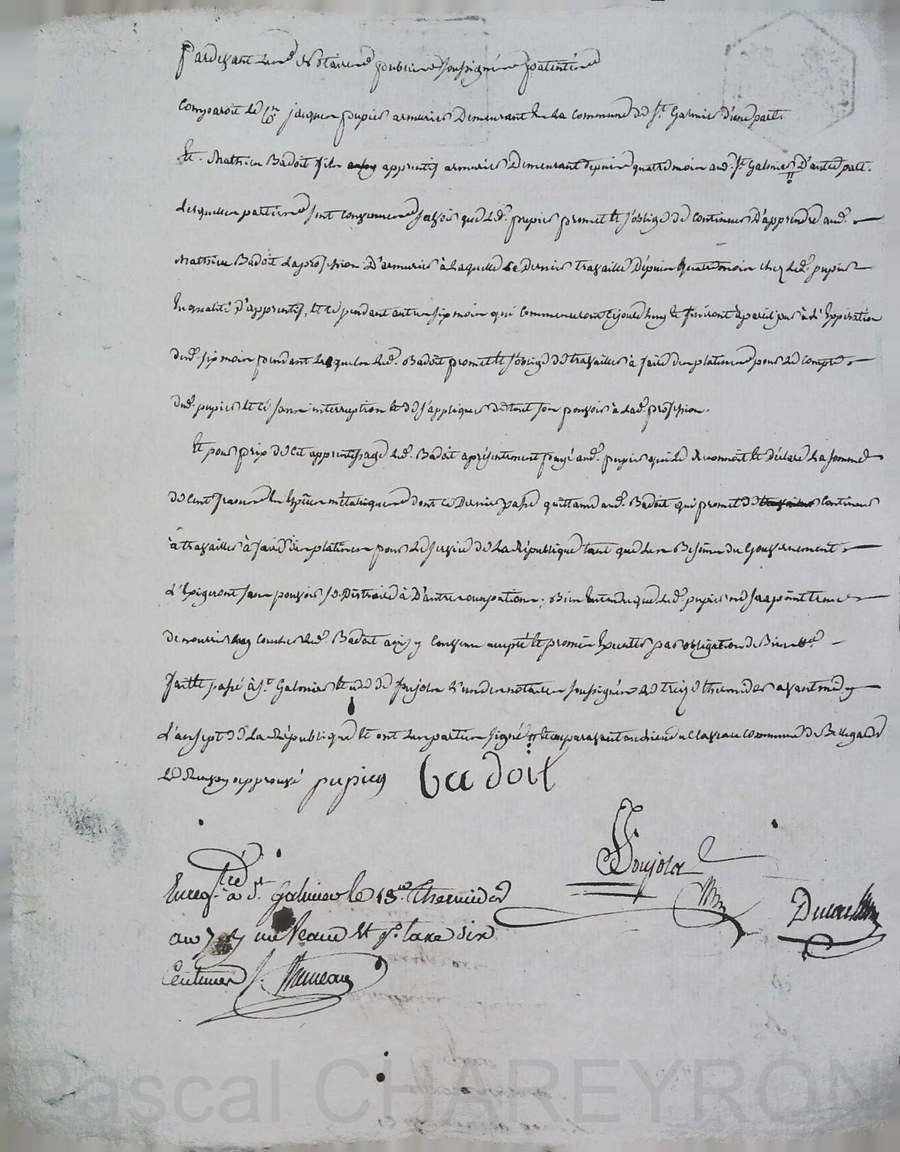 Pardevant les Notaires publics soussignés patentés
Comparoit le Cen jacques pupier armurier Demeurant En la Commune de St. Galmier d'une part.
Et Mathieu Badoit fils apprentif armurier Demeurant depuis quatre mois aud. St. Galmier D'autre part.
Lesquelles parties sont convenues savoir que led. pupier promet Et s'oblige de continuer D'apprendre aud.
Mathieu Badoit La profession D'armurier à Laquelle Ce Dernier travaille Depuis quatre mois chez led. pupier
En qualité d'apprentif, Et ce pendant autres six mois qui commenceront cejourd'huy Et finiront à pareil jour à L'Expiration
desd. six mois pendant lesquels led. Badoit promet Et s'oblige de travailler à faire des platines pour Le compte
dud. pupier Et ce sans interruption Et de s'appliquer de tout son pouvoir à lad. profession.
Et pour prix de cet apprentissage led. Badoit a présentement payé aud. pupier qui le Reconnoit Et déclare La somme
de cent francs En Espèces métalliques dont ce Dernier passe quittance aud. Badoit qui promet de continuer
à travailler à faire des platines pour Le service de La République tant que Les Besoins du Gouvernement
L'Exigeront sans pouvoir se Distraire à D'autres occupations; Bien Entendu que led. pupier ne sera point tenu
de nourrir ny coucher led. Badoit ainsy convenu accepté Et promis Executer par obligation de Biens
Fait Et passé à St. Galmier Etude de Soujols L'un des notaires soussignés Le treize thermidor avant midy
L'an sept de La République Et ont Les parties signé Et comparavant ou chez commune de Bellegarde
Le Renvoy approuvé pupier badoit
Soujols
Enregtré à St. Galmier le 13 thermidor
an 7
Centimes
Pascal CHAREYRON